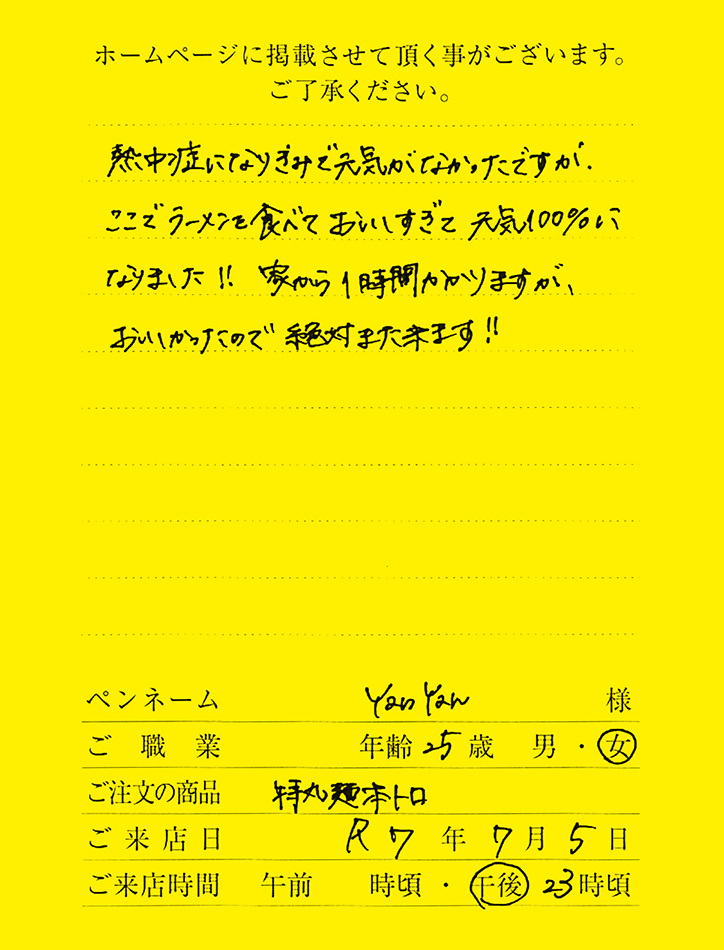 ホームページに掲載させて頂く事がございます。
ご了承ください。
熱中症になりぎみで元気がなかったですが、
ここでラーメンを食べておいしすぎて元気100%に
なりました!! 家から1時間かかりますが、
おいしかったので絶対また来ます!!
ペンネーム YanYan 様
ご職業 年齢 25 歳 男・女
ご注文の商品 特丸麺本トロ
ご来店日 R7年7月5日
ご来店時間 午前 時頃・午後 23時頃